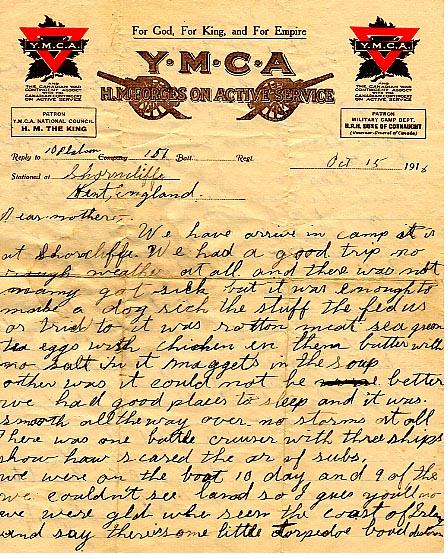 For God, For King, and For Empire
Y.M.C.A.
Y·M·C·A
Y.M.C.A.
H.M. FORCES ON ACTIVE SERVICE
WITH THE CANADIAN WAR CONTINGENT ASSOCN
ON ACTIVE SERVICE
PATRON
Y.M.C.A. NATIONAL COUNCIL
H. M. THE KING
PATRON
MILITARY CAMP DEPT.
H.R.H. DUKE OF CONNAUGHT
(Governor-General of Canada)
Reply to 10 Platoon Company 151 Batt. Regt. Oct 15 1916
Stationed at Shorncliffe
Kent, England.
Dear mother.
We have arrive in camp it is
at Shorncliffe. We had a good trip no
rough weather at all and there was not
many got sick but it was enough to
make a dog sick the stuff the fed us
or tried to it was rotton meat sea green
tea eggs with chicken in them butter with
no salt in it maggets in the soup
other was it could not be better
we had good places to sleep and it was
smooth all the way over no storms at all
There was one battle cruiser with three ships
show haw scared the ar of subs.
we were on the boat 10 day and 9 of the
we couldn't see land so I gues you'll no
we were glad when seem the coast of
and say theres some little torpedoe boad